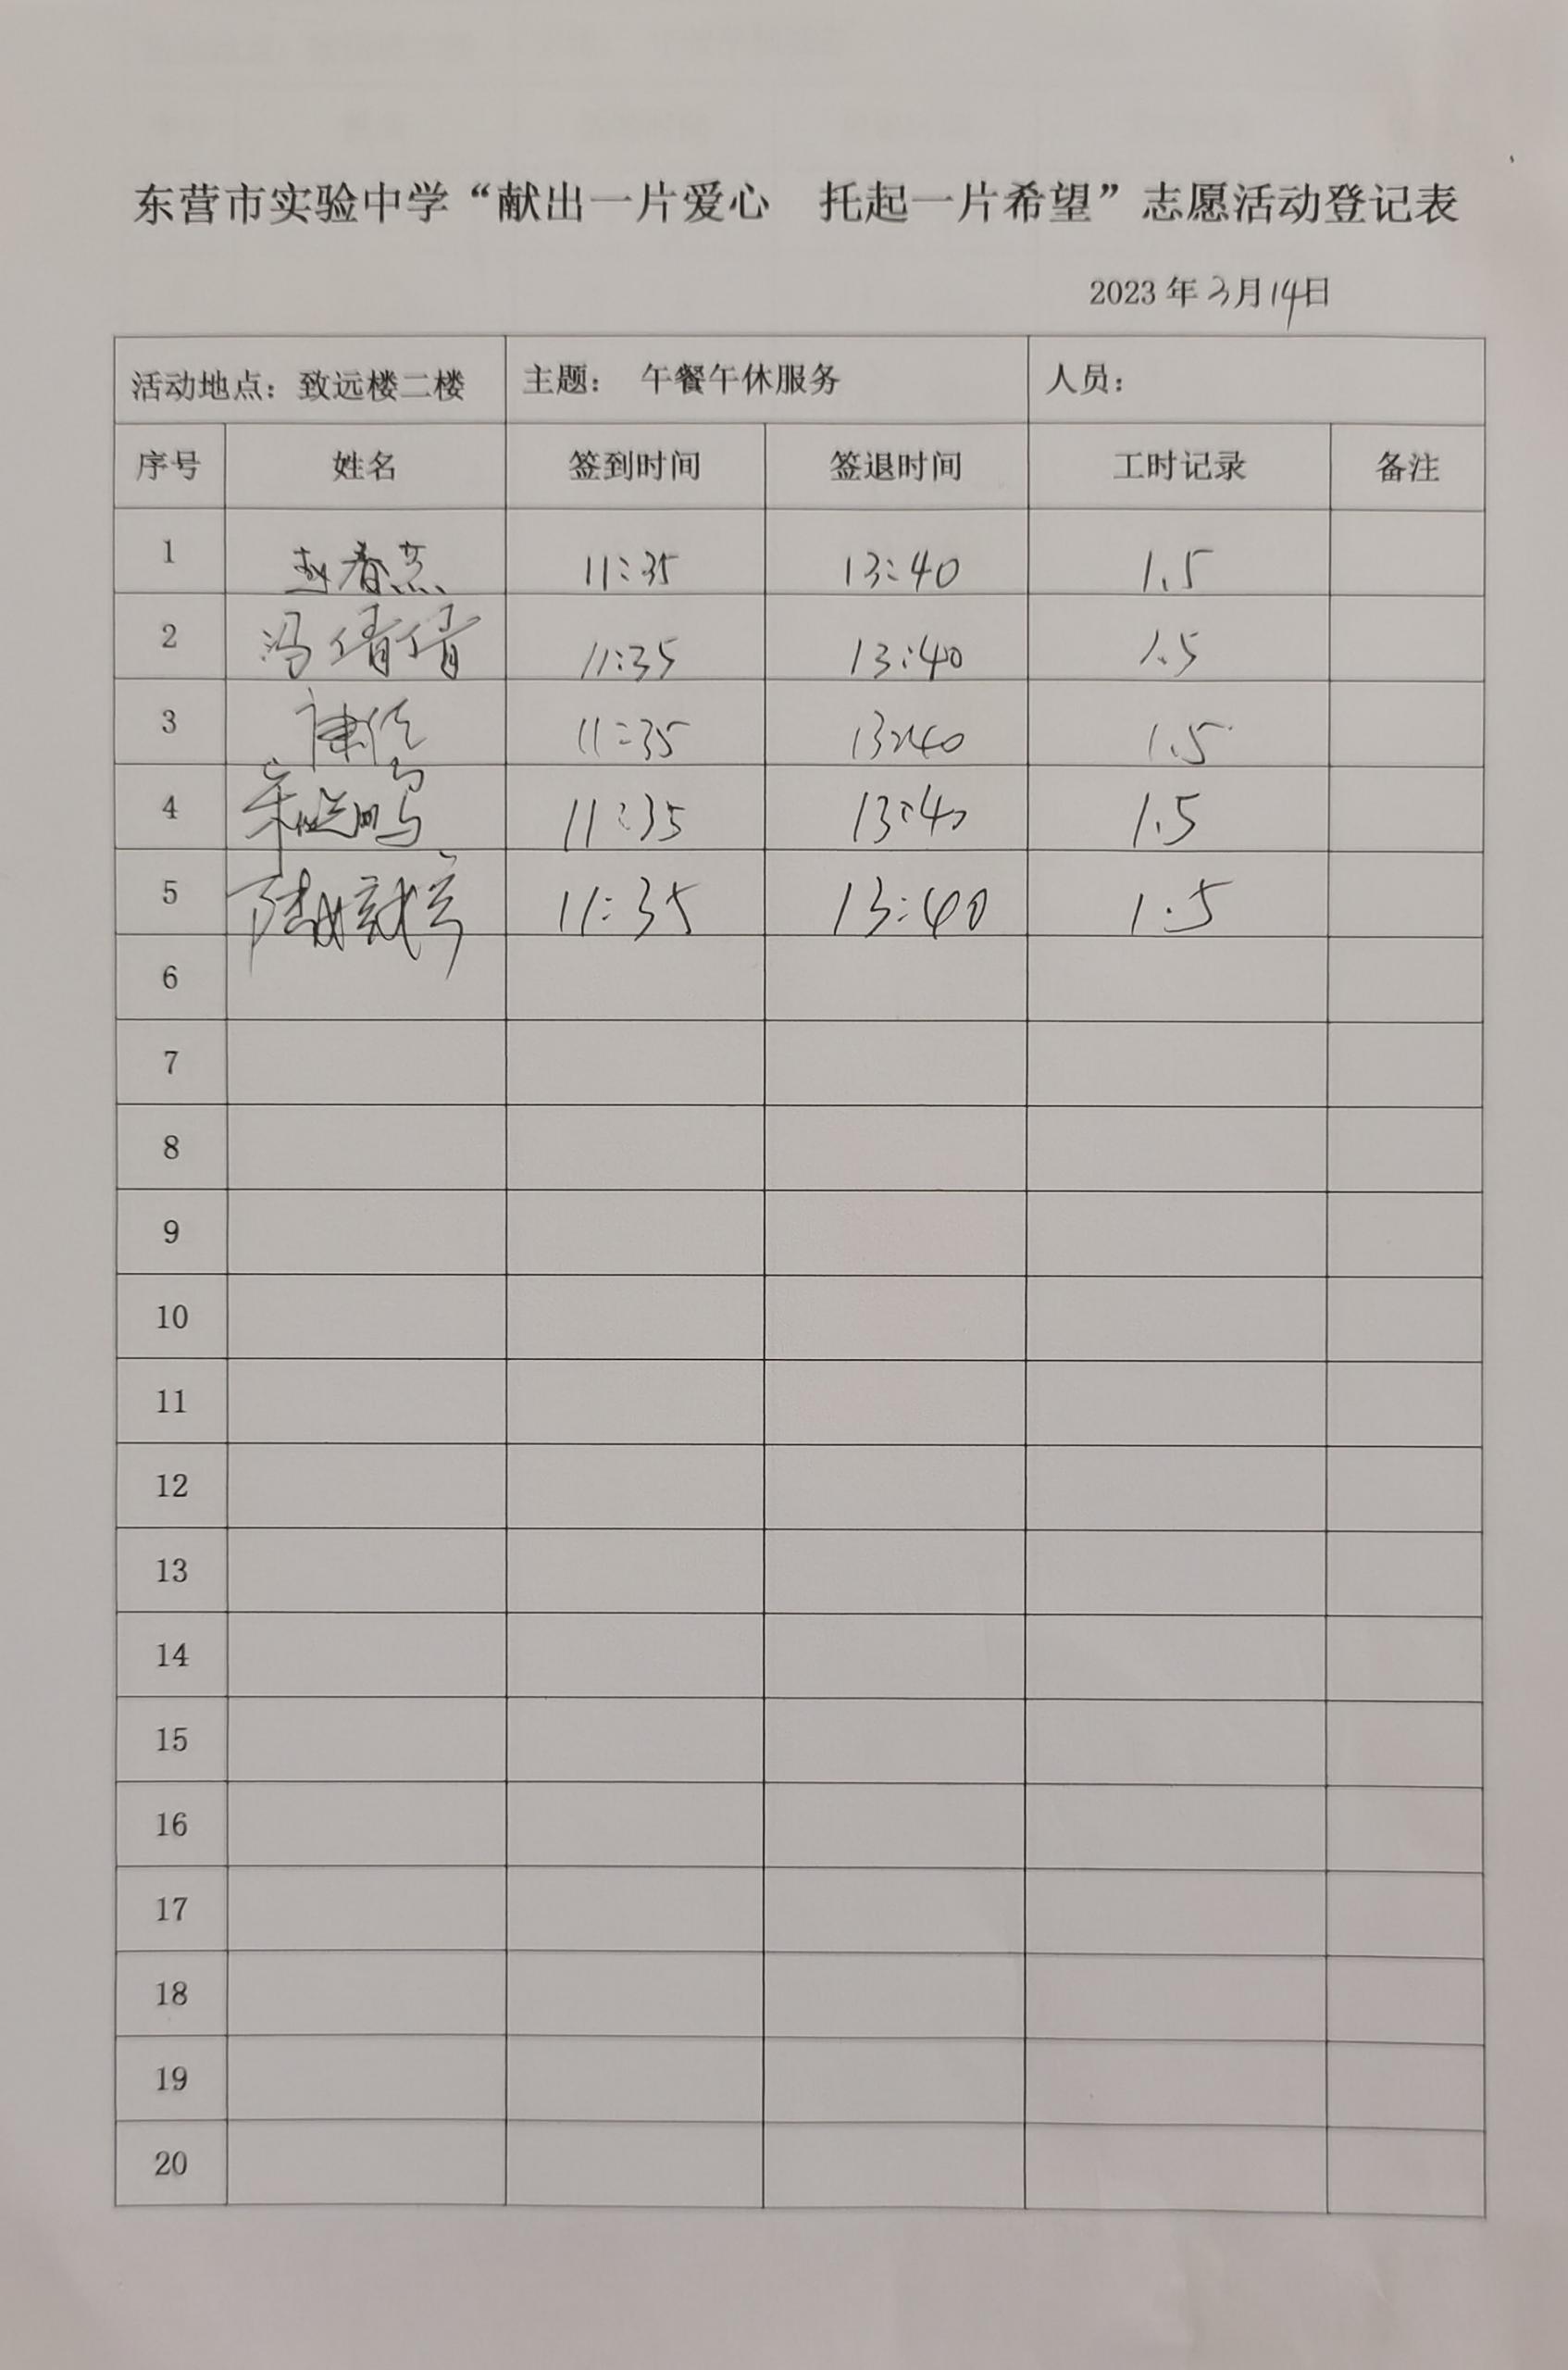 东营市实验中学“献出一片爱心　托起一片希望”志愿活动登记表
2023年3月14日
活动地点：致远楼二楼 主题： 午餐午休服务 人员：
序号 姓名 签到时间 签退时间 工时记录 备注
1 赵春燕 11:35 13:40 1.5
2 冯倩倩 11:35 13:40 1.5
3 11:35 13:40 1.5
4 11:35 13:40 1.5
5 11:35 13:40 1.5
6
7
8
9
10
11
12
13
14
15
16
17
18
19
20